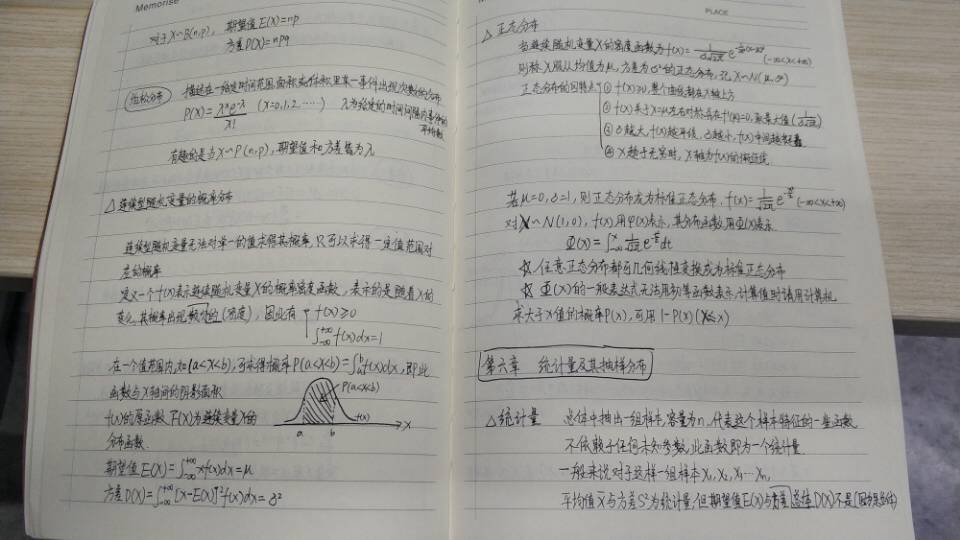 Memorise
对于X~B(n,p), 期望值E(X)=np
方差D(X)=npq
泊松分布 描述在一指定时间范围,面积,或体积里某一事件出现次数的分布
P(X)=λˣe^-λ/x! (x=0,1,2……) λ为给定的时间间隔内事件的
平均数
有趣的是当X~P(n,p), 期望值和方差皆为λ
△连续型随机变量的概率分布
连续型随机变量无法对单一的值求得其概率,只可以求得一定值范围对
应的概率
定义一个f(x)表示连续随机变量X的概率密度函数,表示的是随着X的
变化,其概率出现 (密度), 因此有 f(x)≥0
∫₋∞^+∞ f(x)dx=1
在一个值范围内,如(a<x<b),可求得概率P(a<X<b)=∫ₐᵇf(x)dx,即此
函数与X轴间的阴影面积
P(a<X<b)
f(x)的原函数F(x)为连续变量X的
f(x)
x
a b
分布函数.
期望值E(X)=∫₋∞^+∞ xf(x)dx=μ
方差D(X)=∫₋∞^+∞ [x-E(X)]²f(x)dx=σ²
PLACE
△正态分布
当连续随机变量X的密度函数为f(x)=1/(σ√2π) e (-∞<x<+∞)
则称X服从均值为μ,方差为σ²的正态分布,记X~N(μ,σ²)
正态分布的图特点 ① f(x)≥0,整个曲线都在X轴上方
② f(x)关于x=μ左右对称,且在f(μ)=0,取最大值(1/(σ√2π))
③ σ越大,f(x)越平缓,σ越小,f(x)中间越
④ X趋于无穷时,X轴为f(x)的渐近线
若μ=0,σ=1,则正态分布成为标准正态分布,f(x)=1/√2π e^-x²/2 (-∞<x<+∞)
对X~N(1,0), f(x)用φ(x)表示,其分布函数用Φ(x)表示
Φ(x)=∫₋∞^x 1/√2π e^-t²/2 dt
☆任意正态分布都可几何线性变换成为标准正态分布
☆Φ(x)的一般表达式无法用初等函数表示,计算值时请用计算机
求大于x值的概率P(X),可用1-P(X)(X≤x)
第六章 统计量及其抽样分布
△统计量 总体中抽出一组样本,容量为n,代表这个样本特征的一些函数
不依赖于任何未知参数,此函数即为一个统计量
一般来说对于这样一组样本X₁,X₂,X₃…Xₙ,
平均值x̄与方差S²为统计量,但期望值E(X)与 总体D(X)不是(因为是总体)